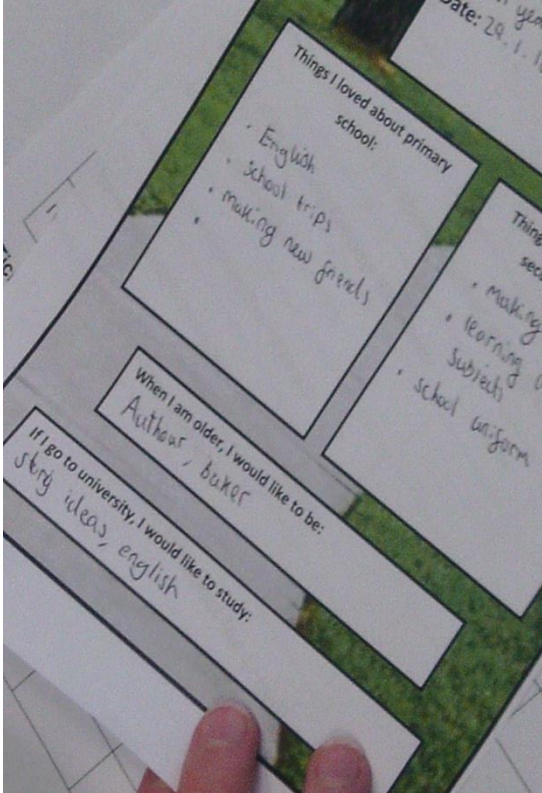 Date: 29.1.
Things I loved about primary
school:
• English
• school trips
• making new friends
•
Things
• making
• learning
subjects
• school uniform
When I am older, I would like to be:
Authour, baker
If I go to university, I would like to study:
story ideas, english